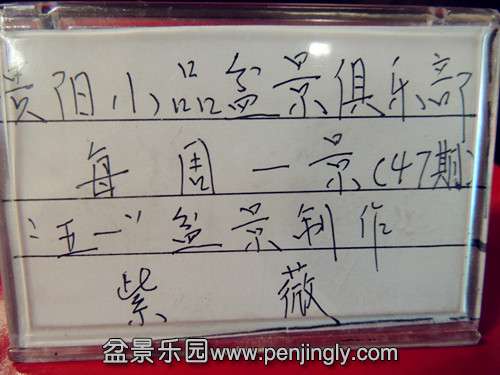 贵阳小品盆景俱乐部
每周一景(47期)
"五一"盆景制作
紫薇
盆景乐园www.penjingly.com